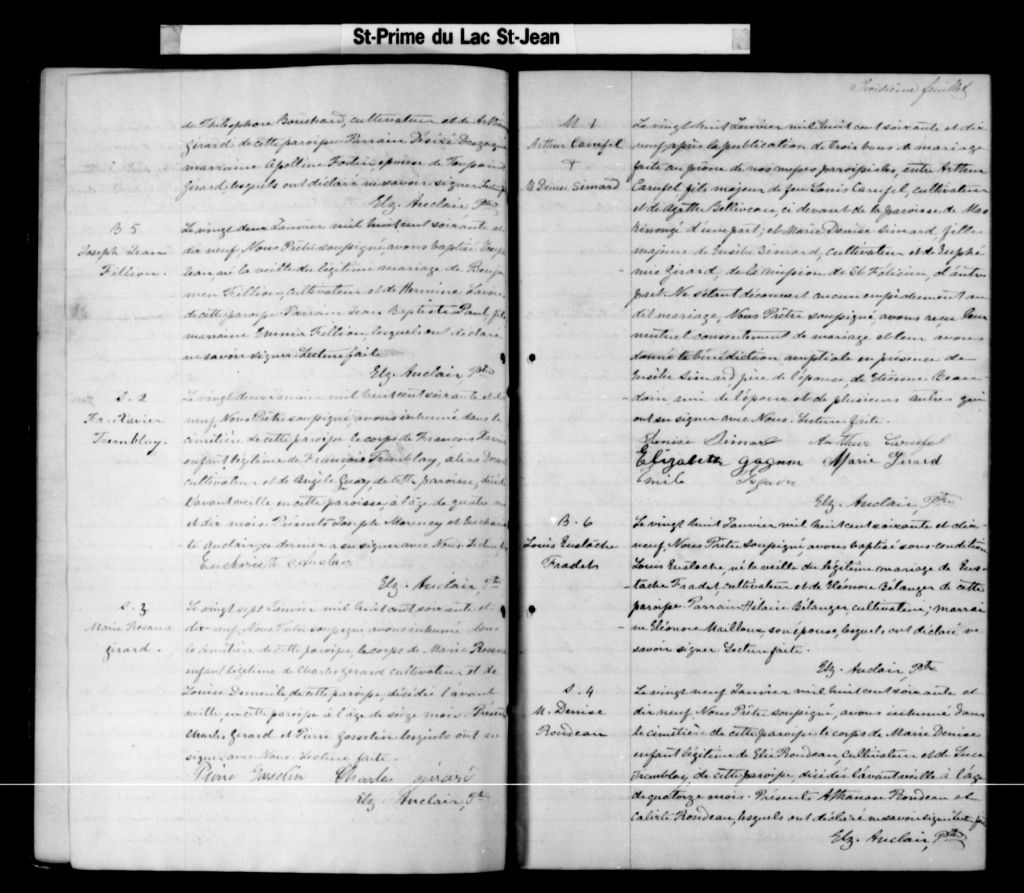 St-Prime du Lac St-Jean
de Théosphore Bouchard, cultivateur et de
Girard de cette paroisse. Parrain Désiré
marraine Apolline Fortin, épouse de
Girard, lesquels ont déclaré ne savoir signer.
Elz. Auclair Ptre
B 5
Joseph Jean
Fillion.
Le vingt deux Janvier mil huit cent soixante et
dix neuf, Nous Prêtre soussigné, avons baptisé
Jean, né la veille du légitime mariage de
Fillion, cultivateur et de Herminie
de cette paroisse. Parrain Jean Baptiste Paul,
marraine Fillion, lesquels ont déclaré
ne savoir signer. Lecture faite.
Elz. Auclair Ptre
S. 2
Fr. Xavier
Tremblay.
Le vingt deux Janvier mil huit cent soixante et dix
neuf, Nous Prêtre soussigné, avons inhumé dans le
cimétière de cette paroisse le corps de François Xavier
enfant légitime de François Tremblay, alias
cultivateur et de Angèle de cette paroisse,
l'avant veille, en cette paroisse, à l'âge de quatre
et dix mois. Présents Joseph Morency et
Auclair, ce dernier a su signer avec Nous.
Elz. Auclair, ptre
S. 3
Marie Rosana
Girard.
Le vingt sept Janvier mil huit cent soixante et
dix-neuf, Nous Prêtre soussigné, avons inhumé dans
le cimétière de cette paroisse, le corps de Marie
enfant légitime de Charles Girard cultivateur et de
Louise de cette paroisse, décédée l'avant
veille, en cette paroisse à l'âge de seize mois. Présents
Charles Girard et Pierre Gosselin lesquels ont su
signer avec Nous. Lecture faite.
Pierre Gosselin Charles girard
Elz Auclair, Pt
Troisième feuillet
M 1
Arthur Carufel
+
M Denise Simard
Le vingt huit Janvier mil huit cent soixante et dix
neuf, après la publication de trois bans de mariage
faite au prône de nos messes paroissiales, entre Arthur
Carufel fils majeur de feu Louis Carufel, cultivateur
et de Agathe Belliveau, ci devant de la paroisse de Mas
kinongé d'une part; et Marie Denise Simard, fille
majeure de Eusèbe Simard, cultivateur et de Euphé
mie Girard, de la mission de St Félicien, d'autre
part. Ne s'étant découvert aucun empêchement au
dit mariage, Nous Prêtre soussigné, avons reçu leur
mutuel consentement de mariage et leur avons
donné la bénédiction nuptiale en présence de
Eusèbe Simard, père de l'épouse, de Etienne Beau
doin, ami de l'époux et de plusieurs autres qui
ont su signer avec Nous. Lecture faite.
Denise Simard Arthur Carufel
Elizabeth gagnon Marie Girard
Elz. Auclair, Ptre
B. 6
Louis Eustache
Fradet
Le vingt huit Janvier mil huit cent soixante et dix
neuf, Nous Prêtre soussigné avons baptisé sous condition
Louis Eustache, né la veille du légitime mariage de Eus
tache Fradet, cultivateur et de Eléonore Bélanger de cette
paroisse. Parrain Hilaire Bélanger, cultivateur; marrai
ne Eléonore Mailloux, son épouse, lesquels ont déclaré ne
savoir signer. Lecture faite.
Elz. Auclair, Ptre
S. 4
M. Denise
Rondeau
Le vingt neuf Janvier mil huit cent soixante et
dix neuf Nous Prêtre soussigné, avons inhumé dans
le cimétière de cette paroisse le corps de Marie Denise
enfant légitime de Elie Rondeau, cultivateur et de Luce
Tremblay, de cette paroisse, décédée l'avant veille à l'âge
de quatorze mois. Présents Athanase Rondeau et
Calixte Rondeau, lesquels ont déclaré ne savoir signer.
Elz. Auclair, Ptre